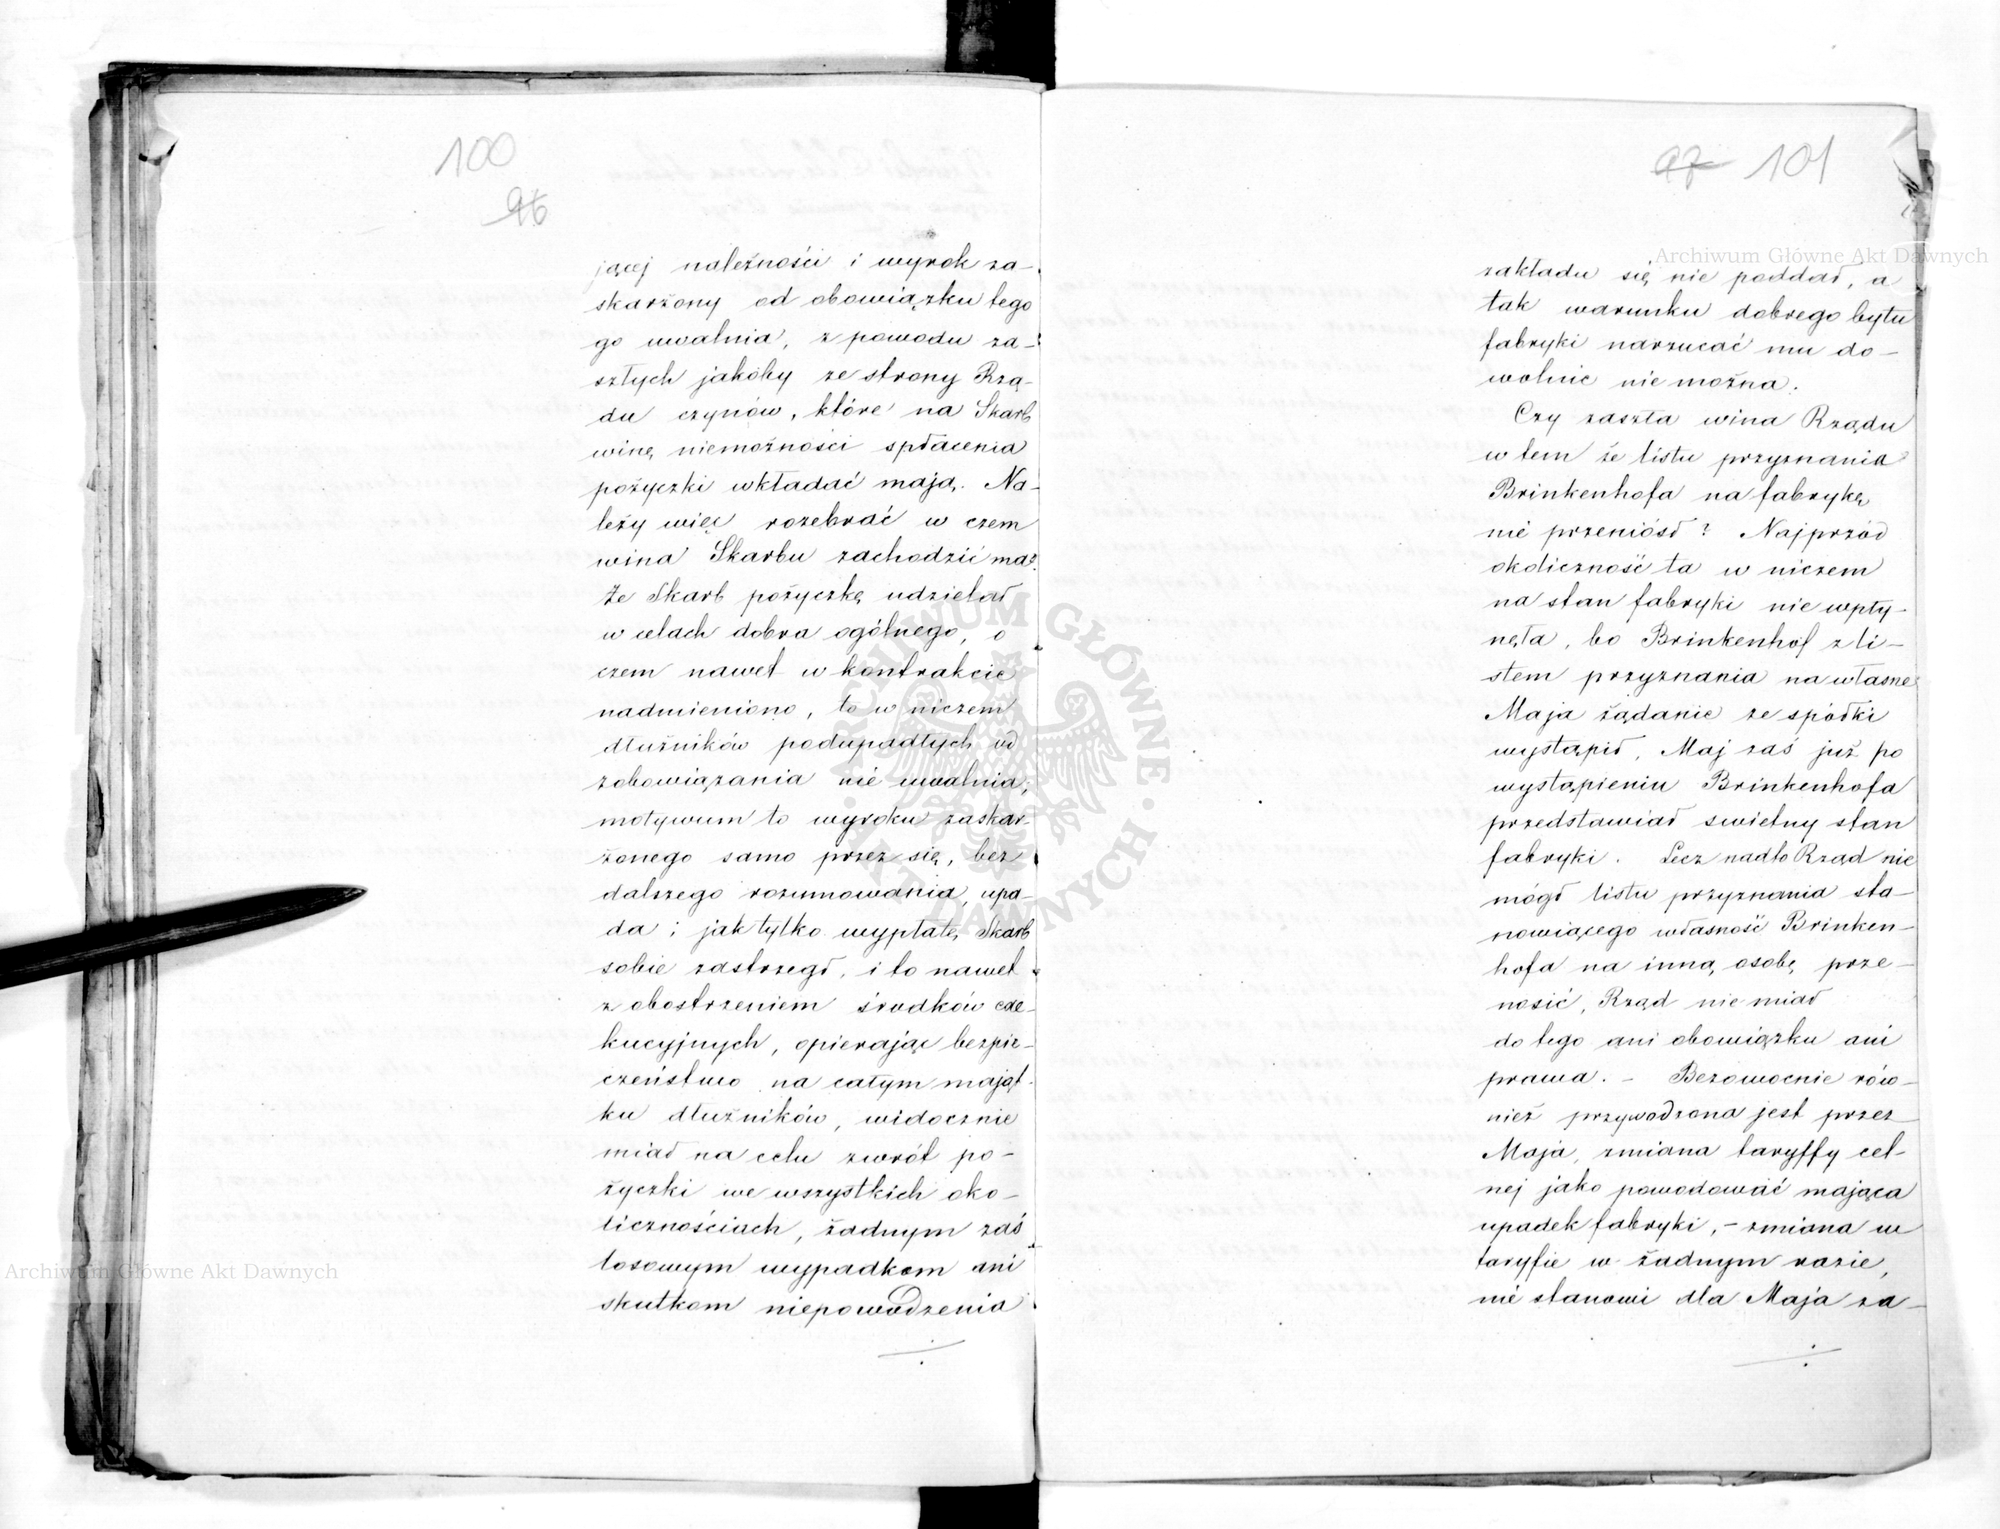 100
96
jącej należności i wyrok za-
skarżony od obowiązku tego
go uwalnia, z powodu za-
szłych jakoby ze strony Rzą-
du czynów, które na Skarb
winę niemożności spłacenia
pożyczki wkładać mają. Na-
leży więc rozebrać w czem
wina Skarbu zachodzić ma?
Że Skarb pożyczkę udzielał
w celach dobra ogólnego, o
czem nawet w kontrakcie
nadmieniono, to w niczem
dłużników podupadłych od
zobowiązania nie uwalnia;
motywum to wyroku zaskar-
żonego samo przez się, bez
dalszego rozumowania, upa-
da; jak tylko wypłatę Skarb
sobie zastrzegł, i to nawet
z obostrzeniem środków exe-
kucyjnych, opierając bezpie-
czeństwo na całym mająt-
ku dłużników, widocznie
miał na celu zwrót po-
życzki we wszystkich oko-
licznościach, żadnym zaś
losowym wypadkom ani
skutkom niepowodzenia
97 101
zakładu się nie poddał, a
tak warunku dobrego bytu
fabryki narzucać mu do-
wolnie nie można.
Czy zaszła wina Rządu
w tem że listu przyznania
Brinkenhofa na fabrykę
nie przeniósł? Najprzód
okoliczność ta w niczem
na stan fabryki nie wpły-
nęła, bo Brinkenhof z li-
stem przyznania na własne
Maja żądanie ze spółki
wystąpił, Maj zaś już po
wystąpieniu Brinkenhofa
przedstawiał swietny stan
fabryki. Lecz nadto Rząd nie
mógł listu przyznania sta-
nowiącego własność Brinken-
hofa na inną osobę prze-
nosić, Rząd nie miał
do tego ani obowiązku ani
prawa. - Bezowocnie rów-
nież przywodzona jest przez
Maja, zmiana taryffy cel-
nej jako powodować mająca
upadek fabryki, - zmiana w
taryfie w żadnym razie,
nie stanowi dla Maja za-
Archiwum Główne Akt Dawnych
Archiwum Główne Akt Dawnych
ARCHIWUM GŁÓWNE AKT DAWNYCH